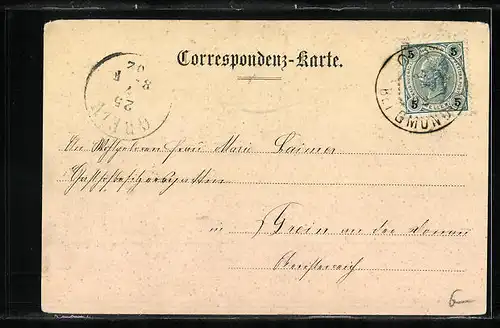 Correspondenz-Karte.
GREIN
25
8-7 F
02
5 5
5 5
GMUND
An Wohlgeboren Frau Marie Laimer
Gasthofbesitzersgattin
in Grein an der Donau
Oberösterreich
6-